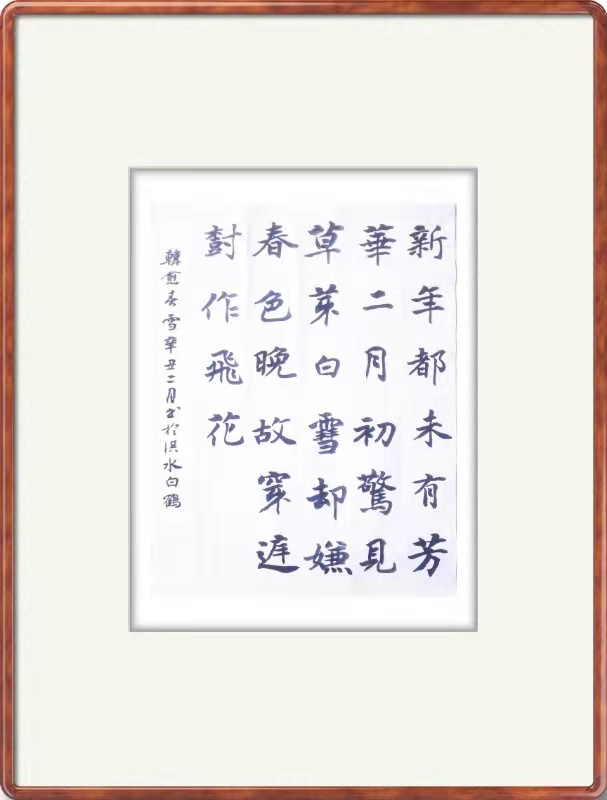 新年都未有芳
華二月初驚見
草芽白雪却嫌
春色晚故穿庭
樹作飛花
韓愈春雪辛丑二月书於洪水白鶴